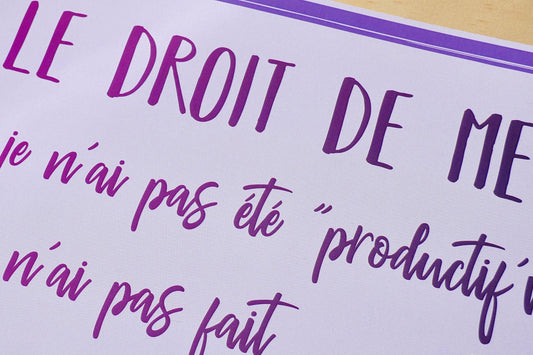 LE DROIT DE ME
je n'ai pas été "productif"
n'ai pas fait